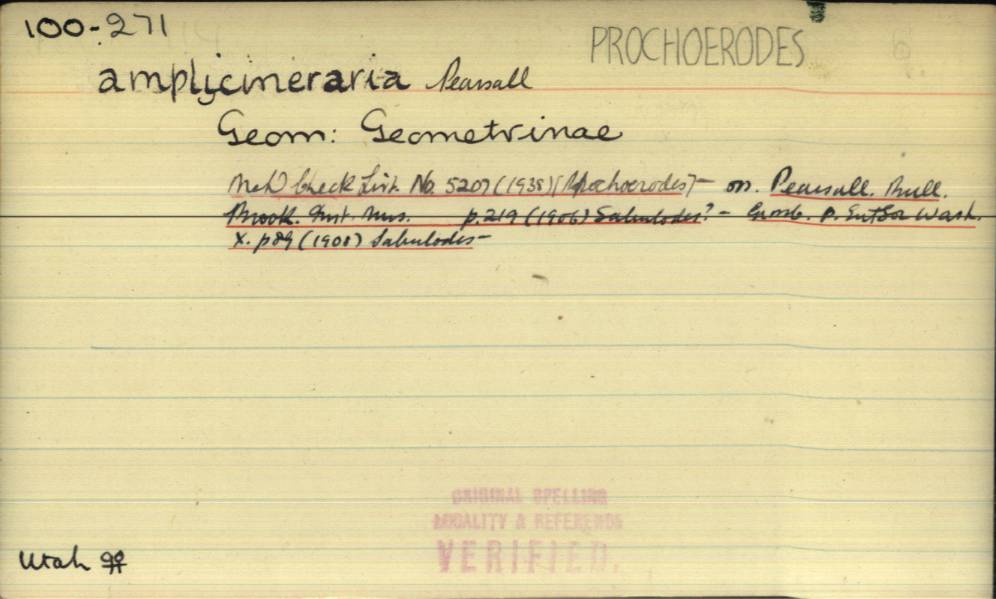 100-271
PROCHOERODES
amplicineraria Pearsall
Geom: Geometrinae
McD Check List. No. 5207 (1938) (Prochoerodes) — on. Pearsall. Bull.
Brook. Inst. Mus. p.219 (1906) Sabulodes? — Grossb. P. Ent Soc Wash.
X. p89 (1908) Sabulodes —
ORIGINAL SPELLING
LOCALITY & REFERENCE
VERIFIED.
Utah ♀♀